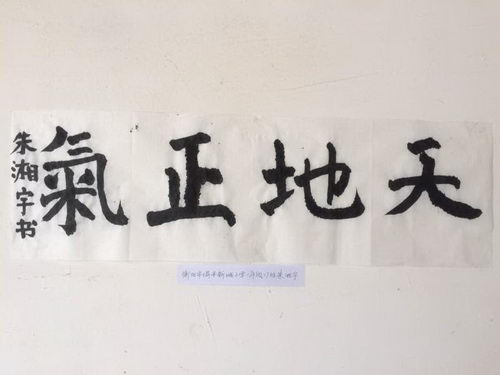 天地正氣
朱湘宇书